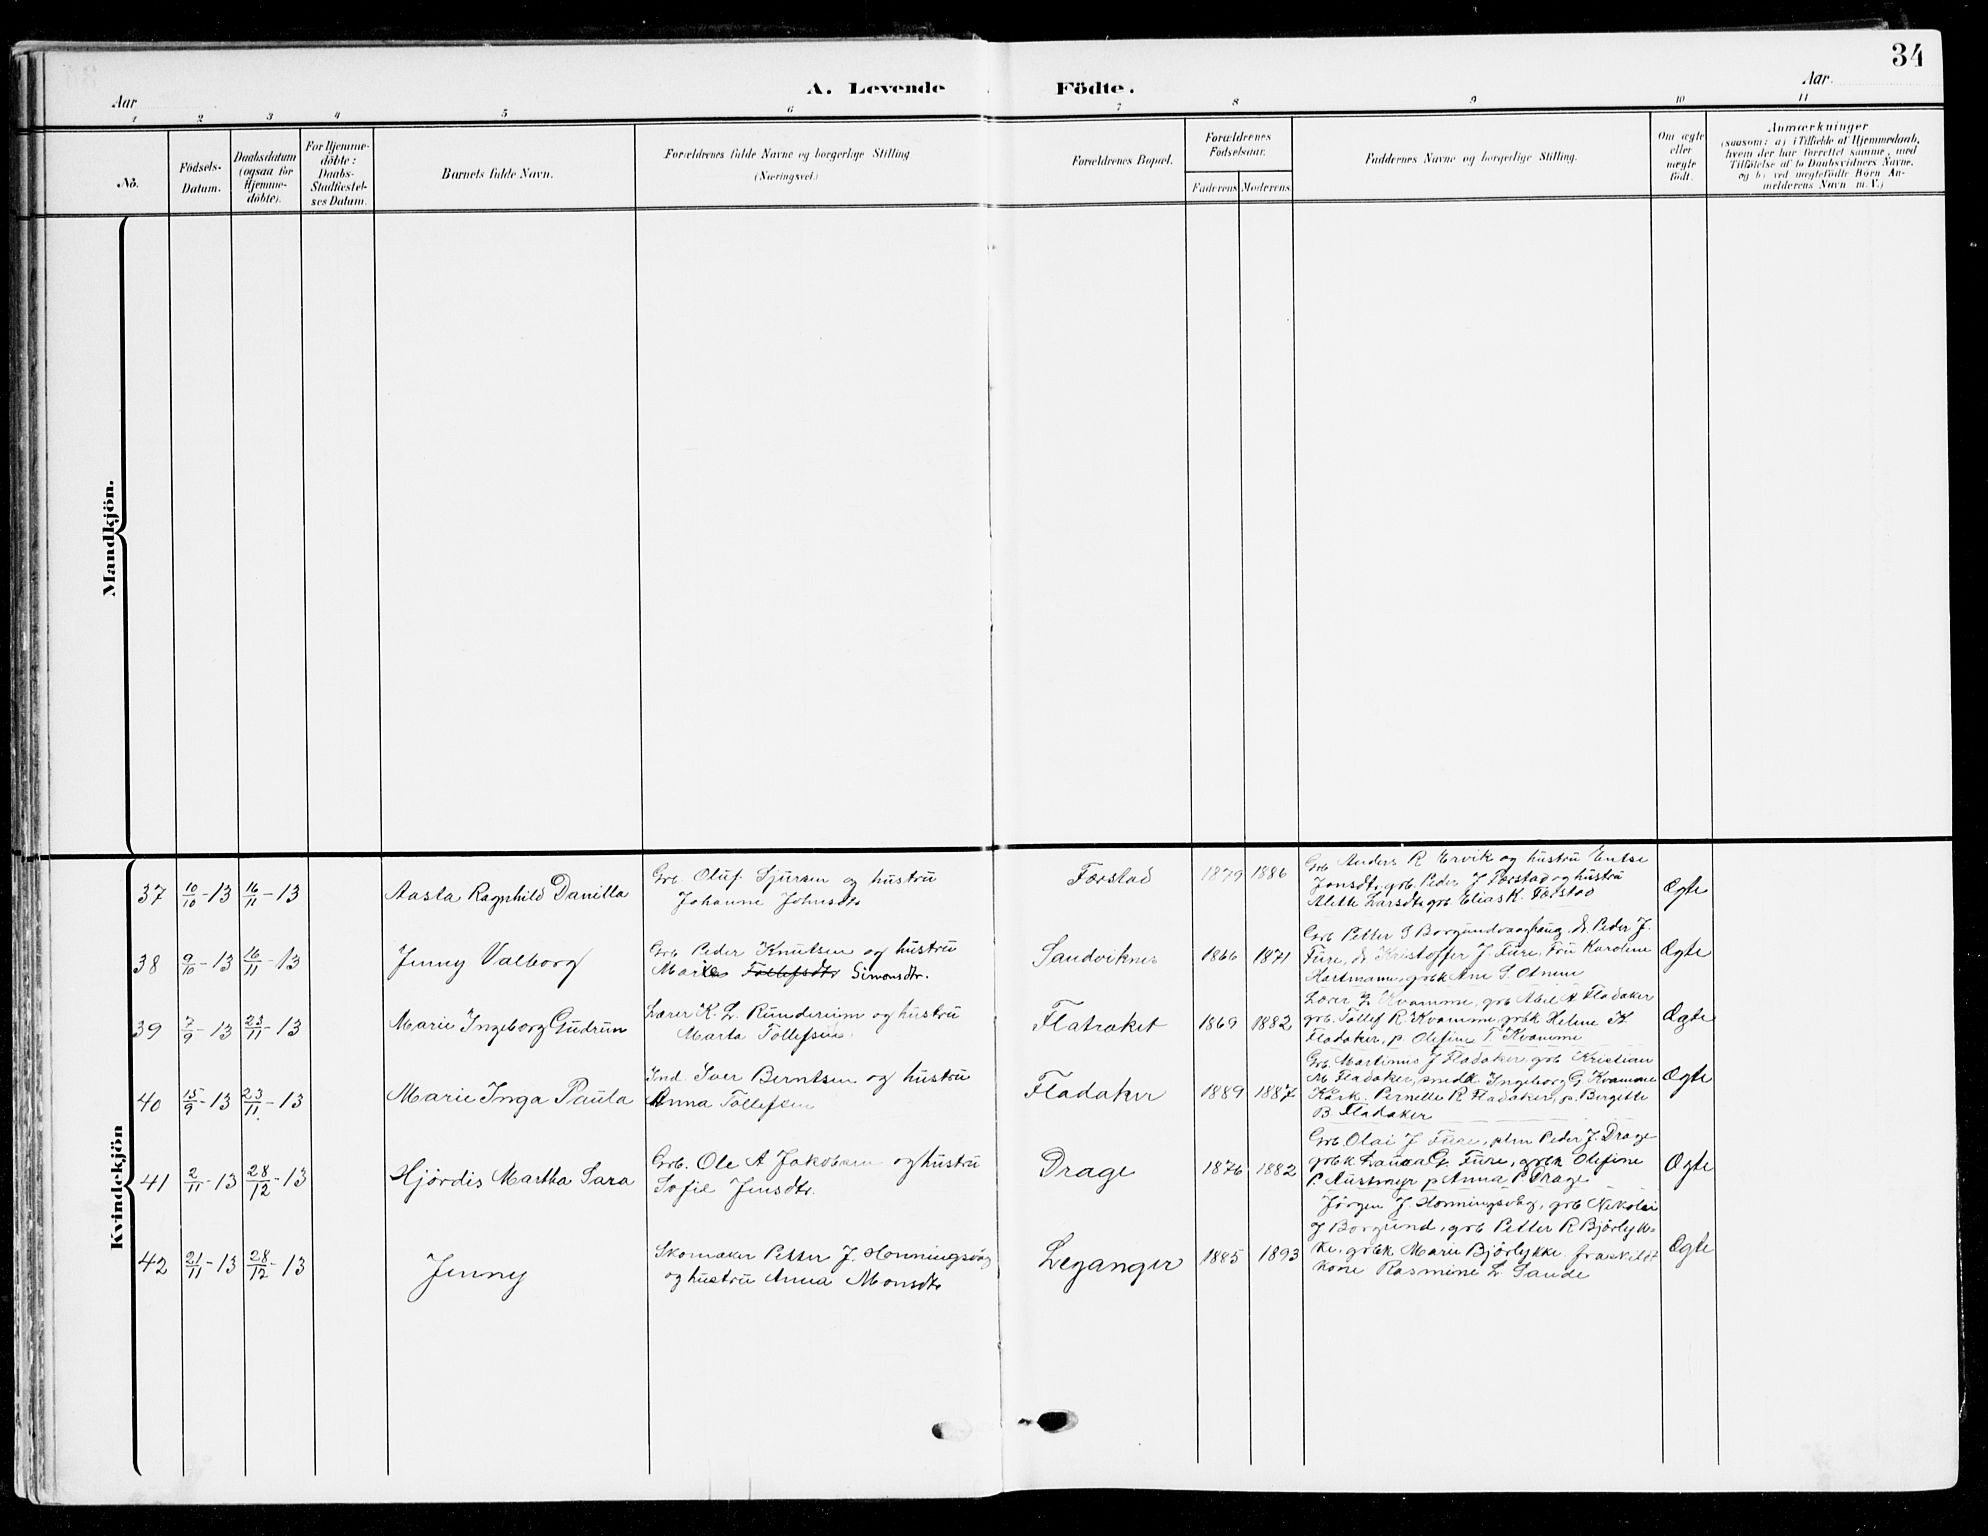 34
A. Levende Födte.
Aar
Aar
1 2 3 4 5 6 7 8 9 10 11
No.
Födsels-
Datum.
Daabsdatum
(ogsaa for
Hjemme-
döbte).
For Hjemme-
döbte:
Daabs-
Stadfæstel-
ses Datum.
Barnets fulde Navn.
Forældrenes fulde Navne og borgerlige Stilling
(Næringsvei.)
Forældrenes Bopæl.
Forældrenes
Födselsaar.
Faderens Moderens
Faddernes Navne og borgerlige Stilling.
Om ægte
eller
uægte
födt.
Anmærkninger
(saasom: a) i Tilfælde af Hjemmedaab,
hvem der har forrettet samme, med
Tilföielse af to Daabsvidners Navne,
og b) ved uægtefödte Börn An-
melderens Navn m. V.)
Mandkjön.
Kvindekjön
37 10/10-13 16/11-13 Aasta Ragnhild Danilla
Grb. Oluf Sjursen og hustru
Johanne Johnsdtr
Færstad 1879 1886
Grb Anders R Ervik og hustru
Jonsdtr, grb. Peder J Færstad og hustru
Alette Larsdtr grb Elias K. Færstad
Ægte
38 9/10-13 16/11-13 Jenny Valborg
Grb Peder Knutsen og hustru
Marie Tollefsdtr Simonsdtr.
Sandviknes 1866 1871
Grb Petter S Borgundvaaghaug, d. Peder J.
Fure, d. Kristoffer J. Fure, Fru Karoline
Hartmann, grbk Ane S. Otnem
Ægte
39 7/9-13 23/11-13 Marie Ingeborg Gudrun
Lærer K. L. Rundereim og hustru
Marta Tollefsen
Flatraket 1869 1882
Lærer Kvamme, grb Abel A Fladaker
grb. Tollef R. Kvamme, grbk Helene K
Fladaker, p. Olefine T. Kvamme
Ægte
40 15/9-13 23/11-13 Marie Inga Paula
Ind. Iver Berntsen og hustru
Anna Tollefsen
Fladaker 1889 1887
Grb. Martinus J Fladaker, grb Kristian
M Fladaker, smdk Ingeborg G. Kvamme
Kårk. Pernille R Fladaker, p. Bergitte
B. Fladaker
Ægte
41 2/11-13 28/12-13 Hjördis Martha Sara
Grb. Ole A Jakobsen og hustru
Sofie Jensdtr.
Drage 1876 1882
Grb. Olai J Fure, Peder J. Drage
grbk Laura G. Fure, grbk Olefine
P. Austmyr p Anna P Drage
Ægte
42 21/11-13 28/12-13 Jenny
Skomaker Petter J. Honningsvåg
og hustru Anna Monsdtr
Leganger 1885 1893
Jörgen J. Honningsvåg, grb Nikolai
J Borgund, grb Petter R Björlyk-
ke, grbk Marie Björlykke. fraskilt
kone Rasmine L. Sande
Ægte